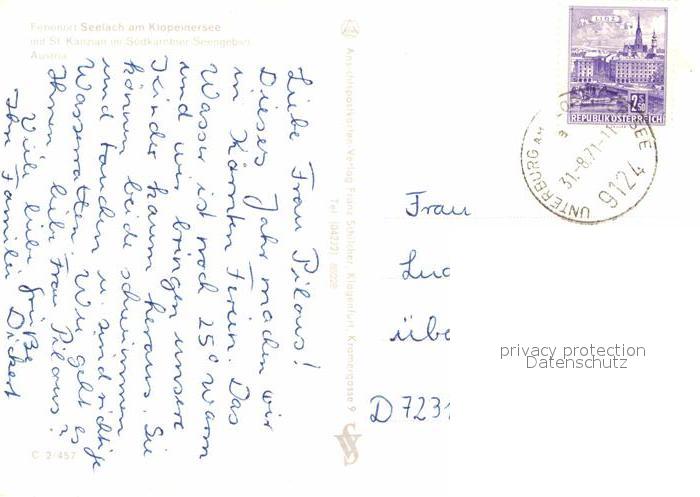 Ferienort Seelach am Klopeinersee
mit St. Kanzian im Südkärntner Seengebiet
Austria
Liebe Frau Pilous!
Dieses Jahr machen wir
in Kärnten Ferien. Das
Wasser ist noch 25° warm
und wir bringen unsere
Kinder kaum heraus. Sie
können beide schwimmen
und tauchen u. sind richtige
Wasserratten. Wie geht es
Ihnen liebe Frau Pilous?
Viele liebe Grüße
Ihre Familie Dickert
C 2/457
Ansichtskartenverlag Franz Schilcher, Klagenfurt, Kramergasse 9
Tel. (04222)
LINZ
2.50
REPUBLIK ÖSTERREICH
UNTERBURG AM SEE
31.-8.71-11
9124
Frau
Luc
übe
D 7231
privacy protection
Datenschutz